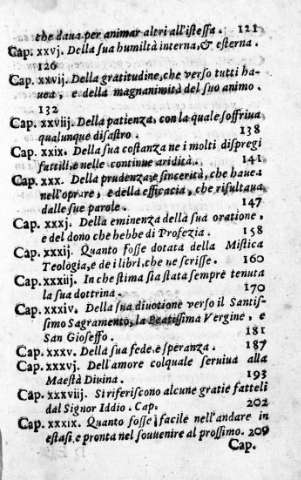 che daua per animar altri all'istessa. 121
Cap. xxvj. Della sua humiltà interna, & esterna.
126
Cap. xxvij. Della gratitudine, che verso tutti ha-
uea, e della magnanimità del suo animo.
132
Cap. xxviij. Della patienza, con la quale soffriua
qualunque disastro. 138
Cap. xxix. Della sua costanza ne i molti dispregi
fattili, e nelle continue aridità. 141
Cap. xxx. Della prudenza, e sincerità, che hauea
nell'oprare, e della efficacia, che risultaua
dalle sue parole. 147
Cap. xxxj. Della eminenza della sua oratione,
e del dono che hebbe di Profezia. 158
Cap. xxxij. Quanto fosse dotata della Mistica
Teologia, e de i libri, che ne scrisse. 160
Cap. xxxiij. In che stima sia stata sempre tenuta
la sua dottrina. 170
Cap. xxxiv. Della sua diuotione verso il Santis-
simo Sagramento, la Beatissima Vergine, e
San Gioseffo. 181
Cap. xxxv. Della sua fede, e speranza. 187
Cap. xxxvj. Dell'amore colquale seruiua alla
Maestà Diuina. 193
Cap. xxxviij. Si riferiscono alcune gratie fatteli
dal Signor Iddio. Cap. 202
Cap. xxxix. Quanto fosse facile nell'andare in
estasi, e pronta nel souuenire al prossimo. 209
Cap.